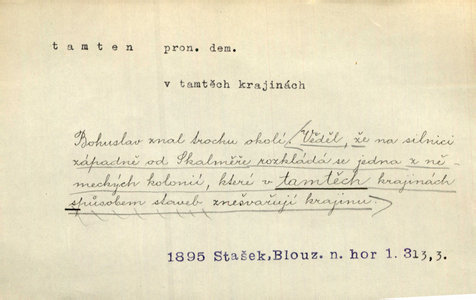 tamten pron. dem.
v tamtěch krajinách
Bohuslav znal trochu okolí. Věděl, že na silnici
západně od Skalměře rozkládá se jedna z ně-
meckých kolonií, které v tamtěch krajinách
způsobem staveb znešvařují krajinu.
1895 Stašek, Blouz. n. hor 1. 313, 3.